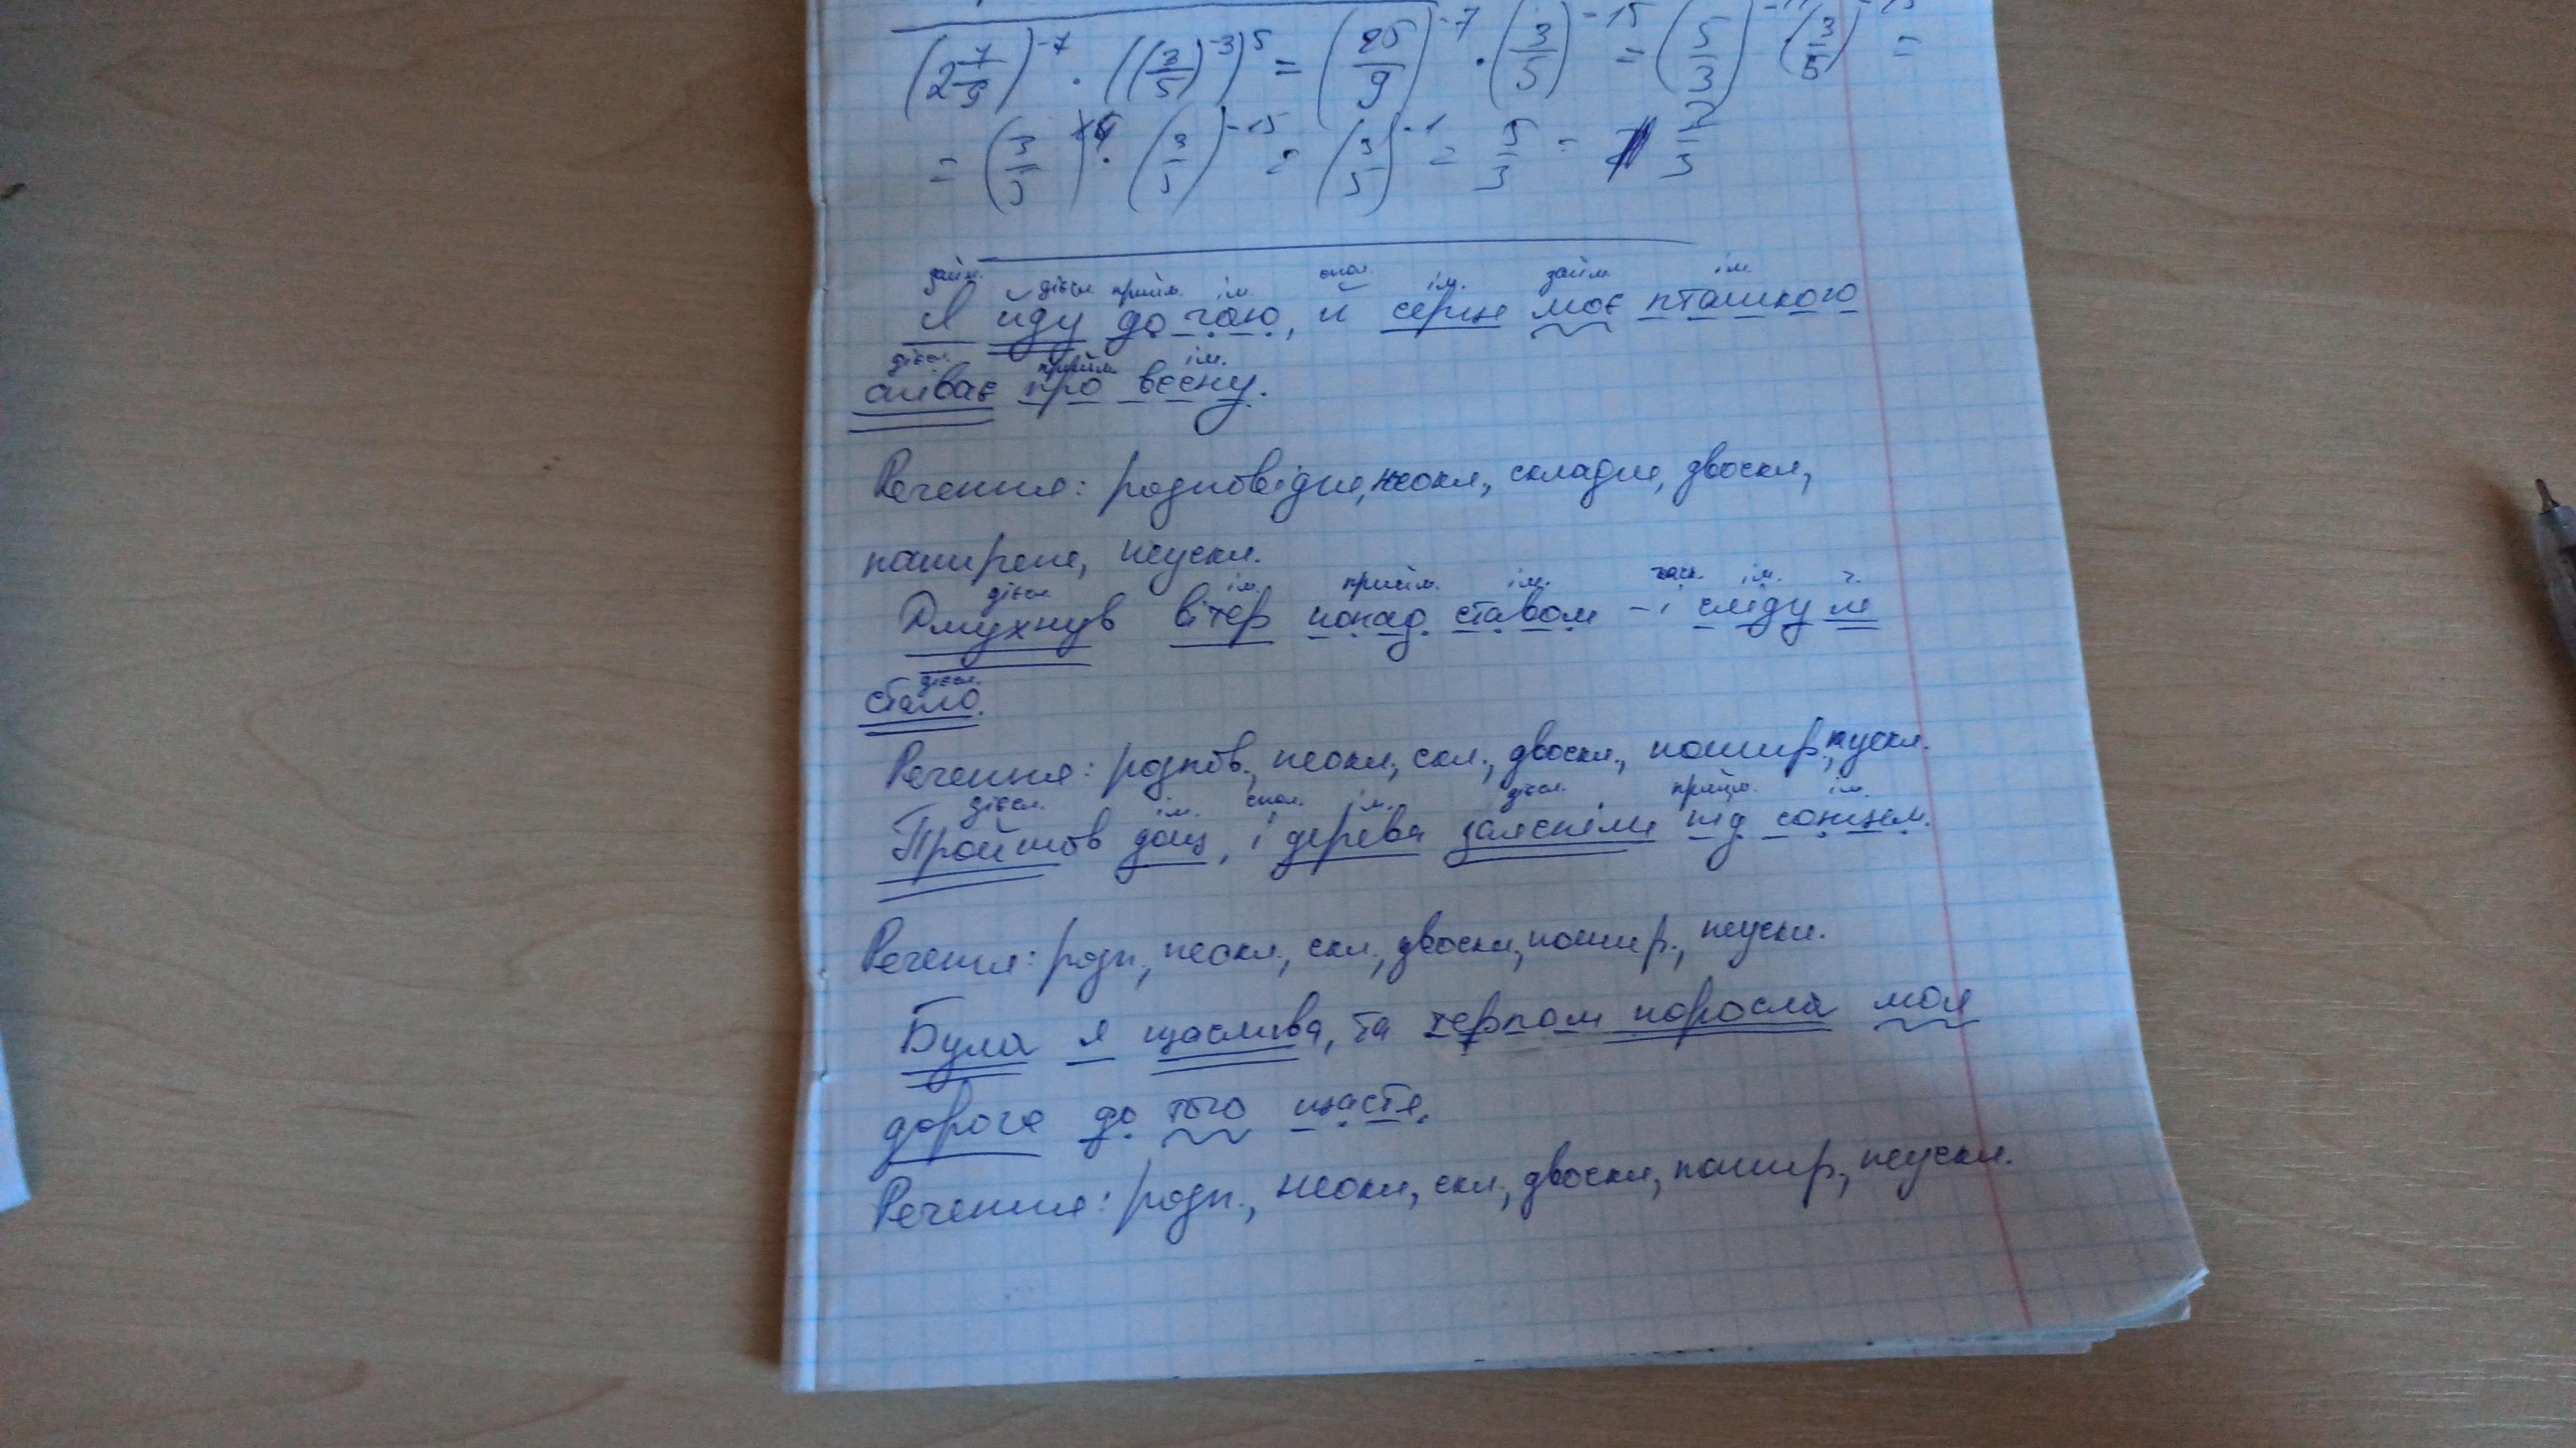 (2 7/9)^-7 · ((3/5)^-3)^5 = (25/9)^-7 · (3/5)^-15 = (5/3)^-14 · (3/5)^-15 =
= (3/5)^14 · (3/5)^-15 = (3/5)^-1 = 5/3 = 1 2/3
займ. дієсл. прийм. ім. спол. ім. займ. ім.
Я йду до гаю, й серце моє пташкою
дієсл. прийм. ім.
співає про весну.
Речення: розповідне, неокл., складне, двоскл.,
поширене, неускл.
дієсл. ім. прийм. ім. част. ім. ч.
Дмухнув вітер понад ставом – і сліду не
дієсл.
стало.
Речення: розпов., неокл., скл., двоскл., пошир., неускл.
дієсл. ім. спол. ім. дієсл. прийм. ім.
Пройшов дощ, і дерева заясніли під сонцем.
Речення: розп., неокл., скл., двоскл., пошир., неускл.
Була я щаслива, та терном поросла моя
дорога до того щастя.
Речення: розп., неокл., скл., двоскл., пошир., неускл.